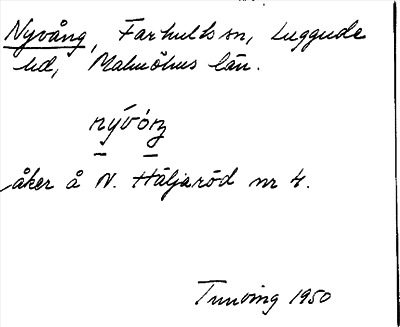 Nyvång, Farhults sn, Luggude
hd, Malmöhus län.
nývóŋ
åker å N. Häljaröd nr 4.
1950